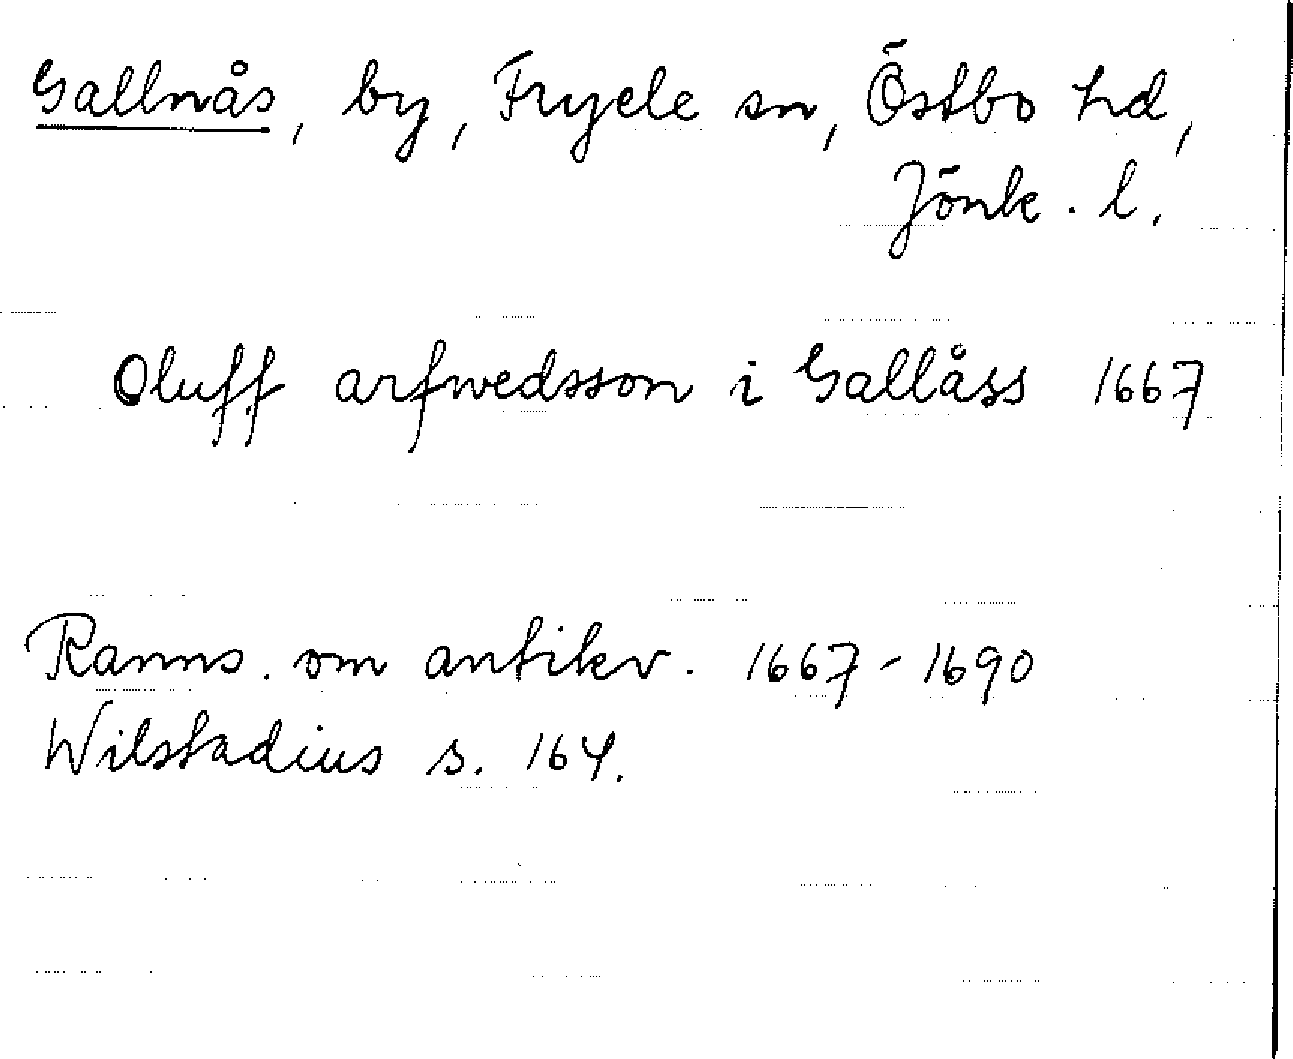 Gallnås, by, Fryele sn, Östbo hd,
Jönk. l.
Oluff arfwedsson i Gallåss 1667
Ranns. om antikv. 1667-1690
Wilstadius s. 164.